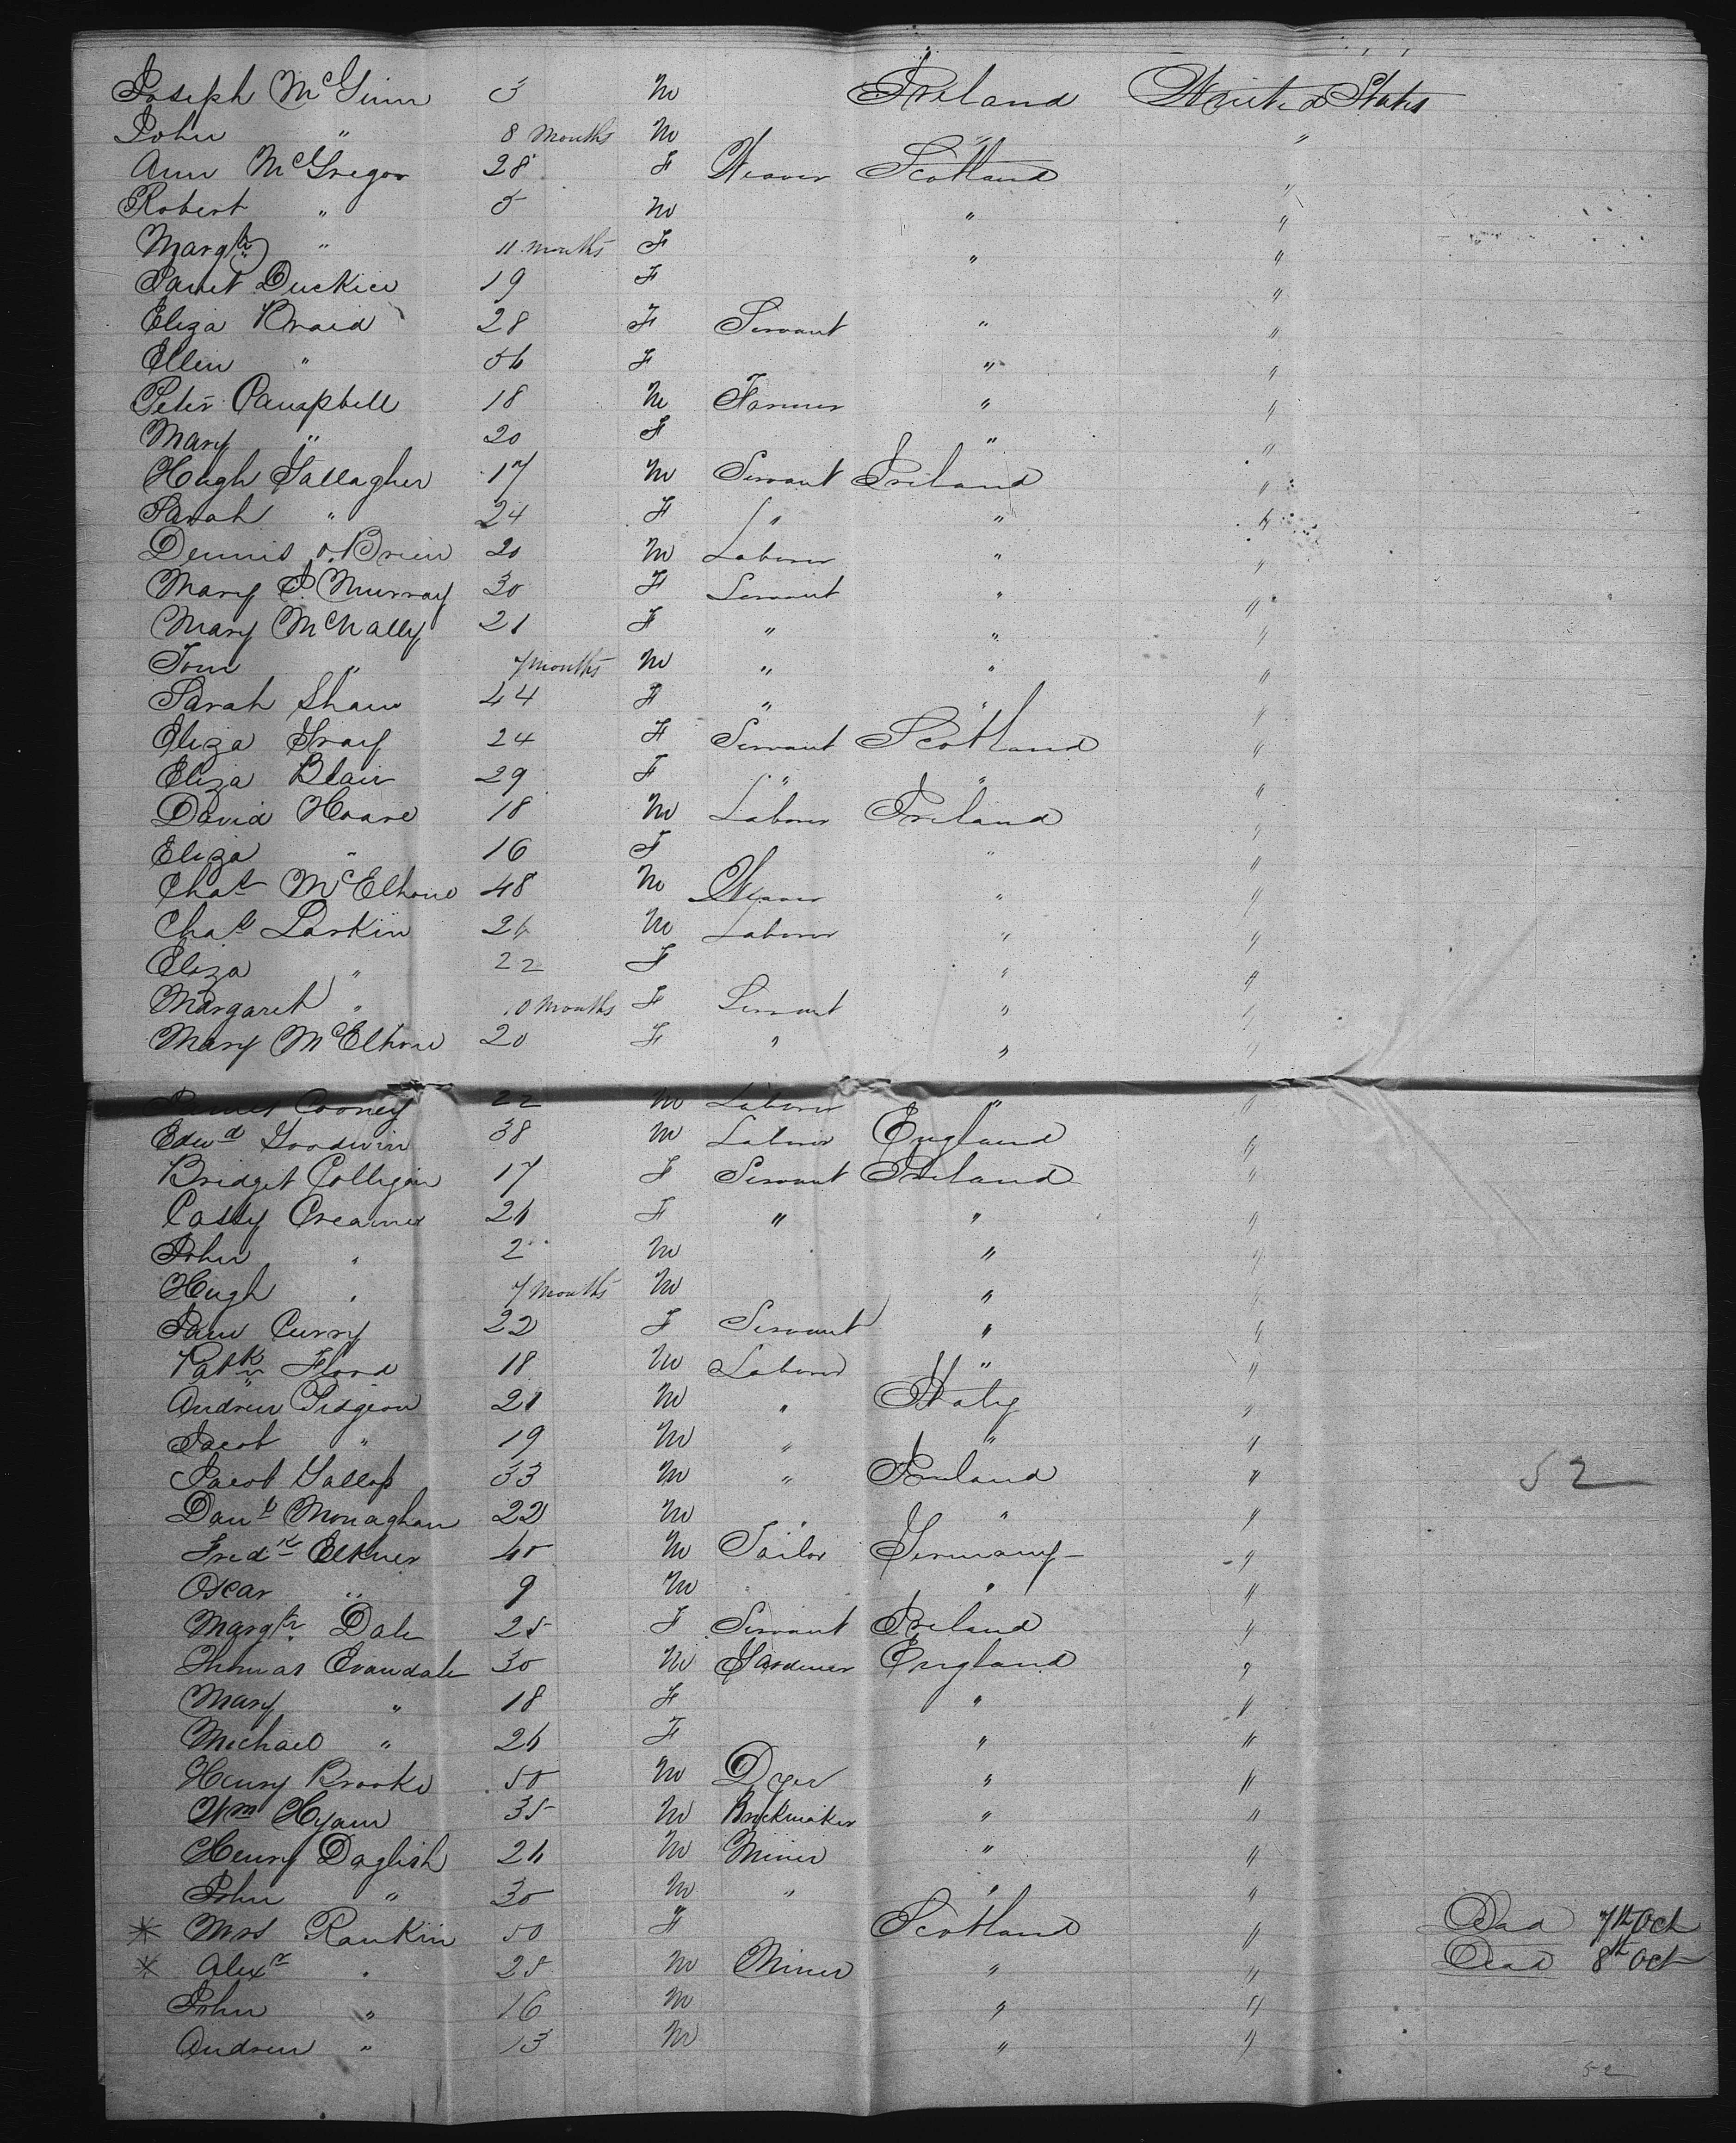 Joseph McGinn 3 M Ireland United States
John " 8 Months M " "
Ann McGregor 28 F Weaver Scotland "
Robert " 5 M " "
Margt " 11 months F " "
Janet Duckie 19 F "
Eliza Braid 28 F Servant " "
Ellen " 56 F " "
Peter Campbell 18 M Farmer " "
Mary " 20 F " "
Hugh Gallagher 17 M Servant Ireland "
Sarah " 24 F " " "
Dennis O'Brien 20 M Laborer " "
Mary J. Murray 30 F Servant " "
Mary McNally 21 F " " "
Tom " 7 months M " " "
Sarah Shaw 44 F " " "
Eliza Gray 24 F Servant Scotland "
Eliza Blair 29 F " " "
David Hoare 18 M Laborer Ireland "
Eliza " 16 F " "
Chas McElhone 48 M Weaver " "
Chas Larkin 26 M Laborer " "
Eliza " 22 F " "
Margaret " 10 Months F Servant " "
Mary McElhone 20 F " " "
James Cooney 22 M Laborer " "
Edwd Goodwin 38 M Laborer England "
Bridget Colligan 17 F Servant Ireland "
Cassy Creamer 26 F " " "
John " 2 M " "
Hugh " 7 Months M " "
Jane Curry 22 F Servant " "
Patk Flood 18 M Laborer " "
Andrew Pidgeon 21 M " Italy "
Jacob " 19 M " " "
Jacob Gallop 33 M " Ireland " 52
Danl Monaghan 22 M " " "
Fredk Elkner 40 M Tailor Germany "
Oscar " 9 M " " "
Margt Dale 25 F Servant Ireland "
Thomas Evandale 30 M Gardener England "
Mary " 18 F " "
Michael " 26 F " "
Henry Brooke 50 M Dyer " "
Wm Hyam 35 M Brickmaker " "
Henry Daglish 26 M Miner " "
John " 30 M " " "
* Mrs Rankin 50 F Scotland " Dead 7th Oct
* Alexr " 25 M Miner " " Dead 8th Oct
John " 16 M " "
Andrew " 13 M " "
52